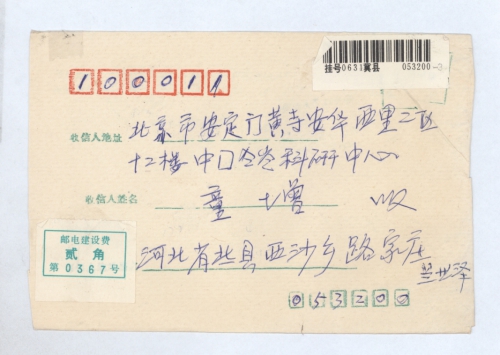 挂号0631冀县 053200-3
100011
收信人地址 北京市安定门黄寺安华西里二区
十二楼中门 科研中心
收信人姓名 童 增 收
邮电建设费
贰 角
第0367号
河北省 县西沙乡路家庄
053200